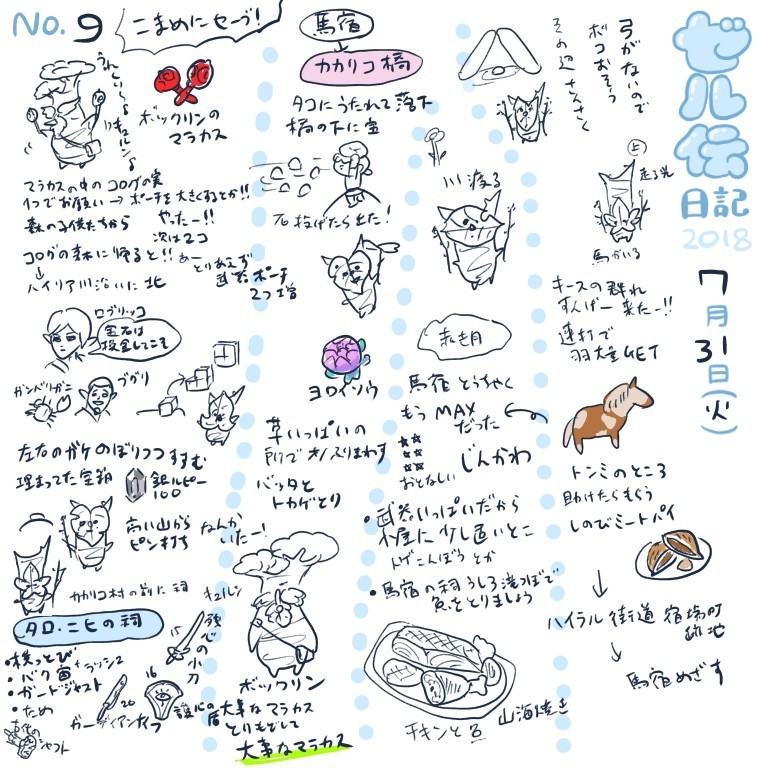 ゼル伝
日記
2018
7月31日(火)
弓がないので
ボコおそう
その辺さんさく
上
走る光
馬がいる
キースの群れ
すんげー来たー!!
連打で
羽大量GET
トンミのところ
助けたらもらう
しのびミートパイ
↓
ハイラル街道 宿場町
跡地
↓
馬宿めざす
川渡る
赤き月
馬宿とうちゃく
もうMAX
だった
おとなしい
じんかわ
・武器いっぱいだから
小屋に少し置いとこ
トゲこんぼうとか
・馬宿の祠うしろ滝つぼで
魚をとりましょう
チキンと
山海焼き
馬宿
↓
カカリコ橋
タコにうたれて落下
橋の下に宝
石投げたら出た!
ヨロイソウ
草いっぱいの
所で木ふりまわす
バッタと
トカゲとり
No.9
こまめにセーブ!
ボックリンの
マラカス
マラカスの中のコログの実
1つでお願い→ポーチを大きくするとか!!
森の子供たちから
やったー!!
次は2コ
コログの森に帰ると!!
あー
とりあえず
武器ポーチ
2つ増
↓
ハイリア川沿いに北
ロブリッコ
宝石は
換金してこそ
ガンバリガニ
ブグリ
左右のガケのぼりつつすすむ
埋まってた宝箱
銀ルピー
100
高い山から
ピン打ち
なんか
いたー!
カカリコ村の前に祠
タロ・ニヒの祠
・横っとび
+ラッシュ
・バク宙
・ガードジャスト
・ため
古代の
シャフト
15
旅心の小刀
20
ガーディアンナイフ
16
護心の盾
キュルン
ボックリン
大事なマラカス
とりもどして
大事なマラカス